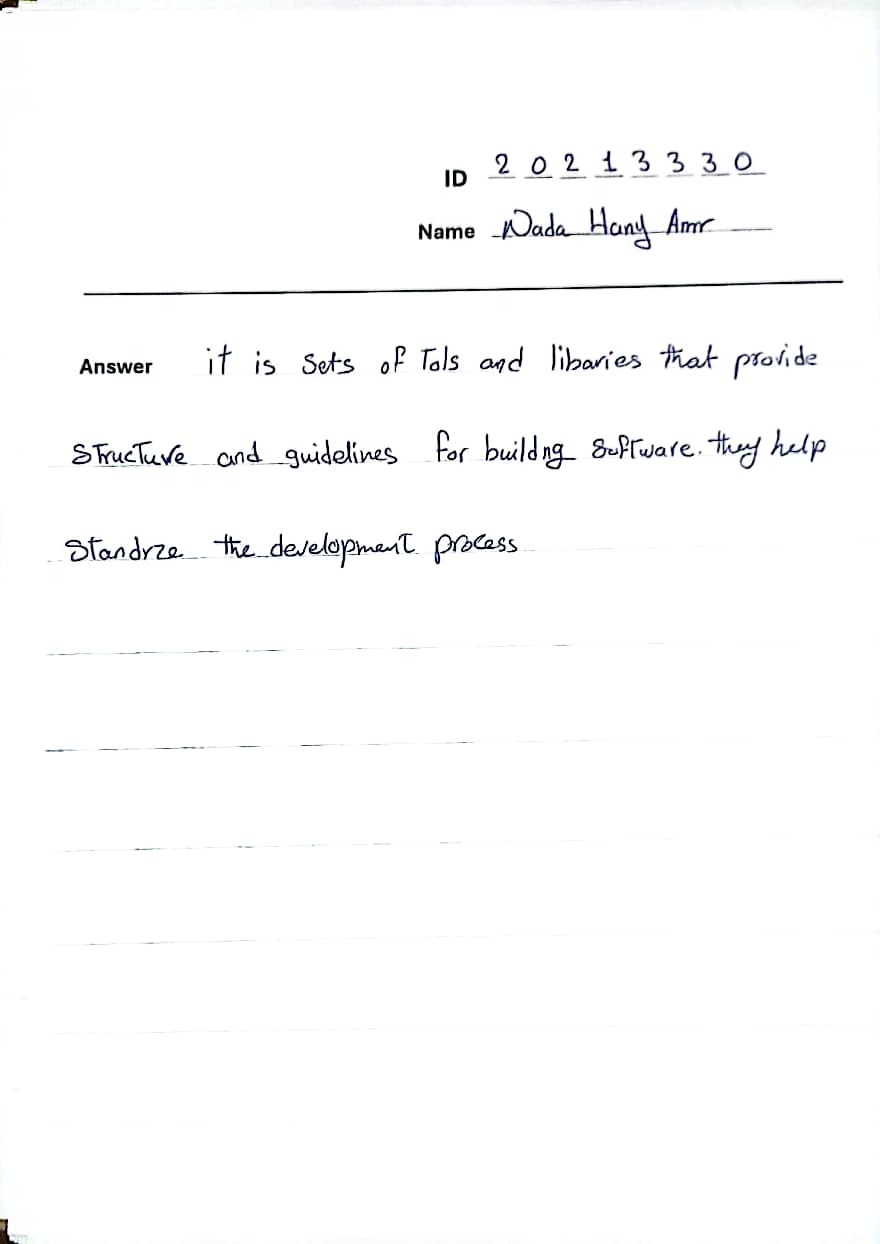 ID 2 0 2 1 3 3 3 0
Name Nada Hany Amr
Answer it is sets of Tols and libaries that provide
structure and guidelines for buildng software. they help
standrze the development process